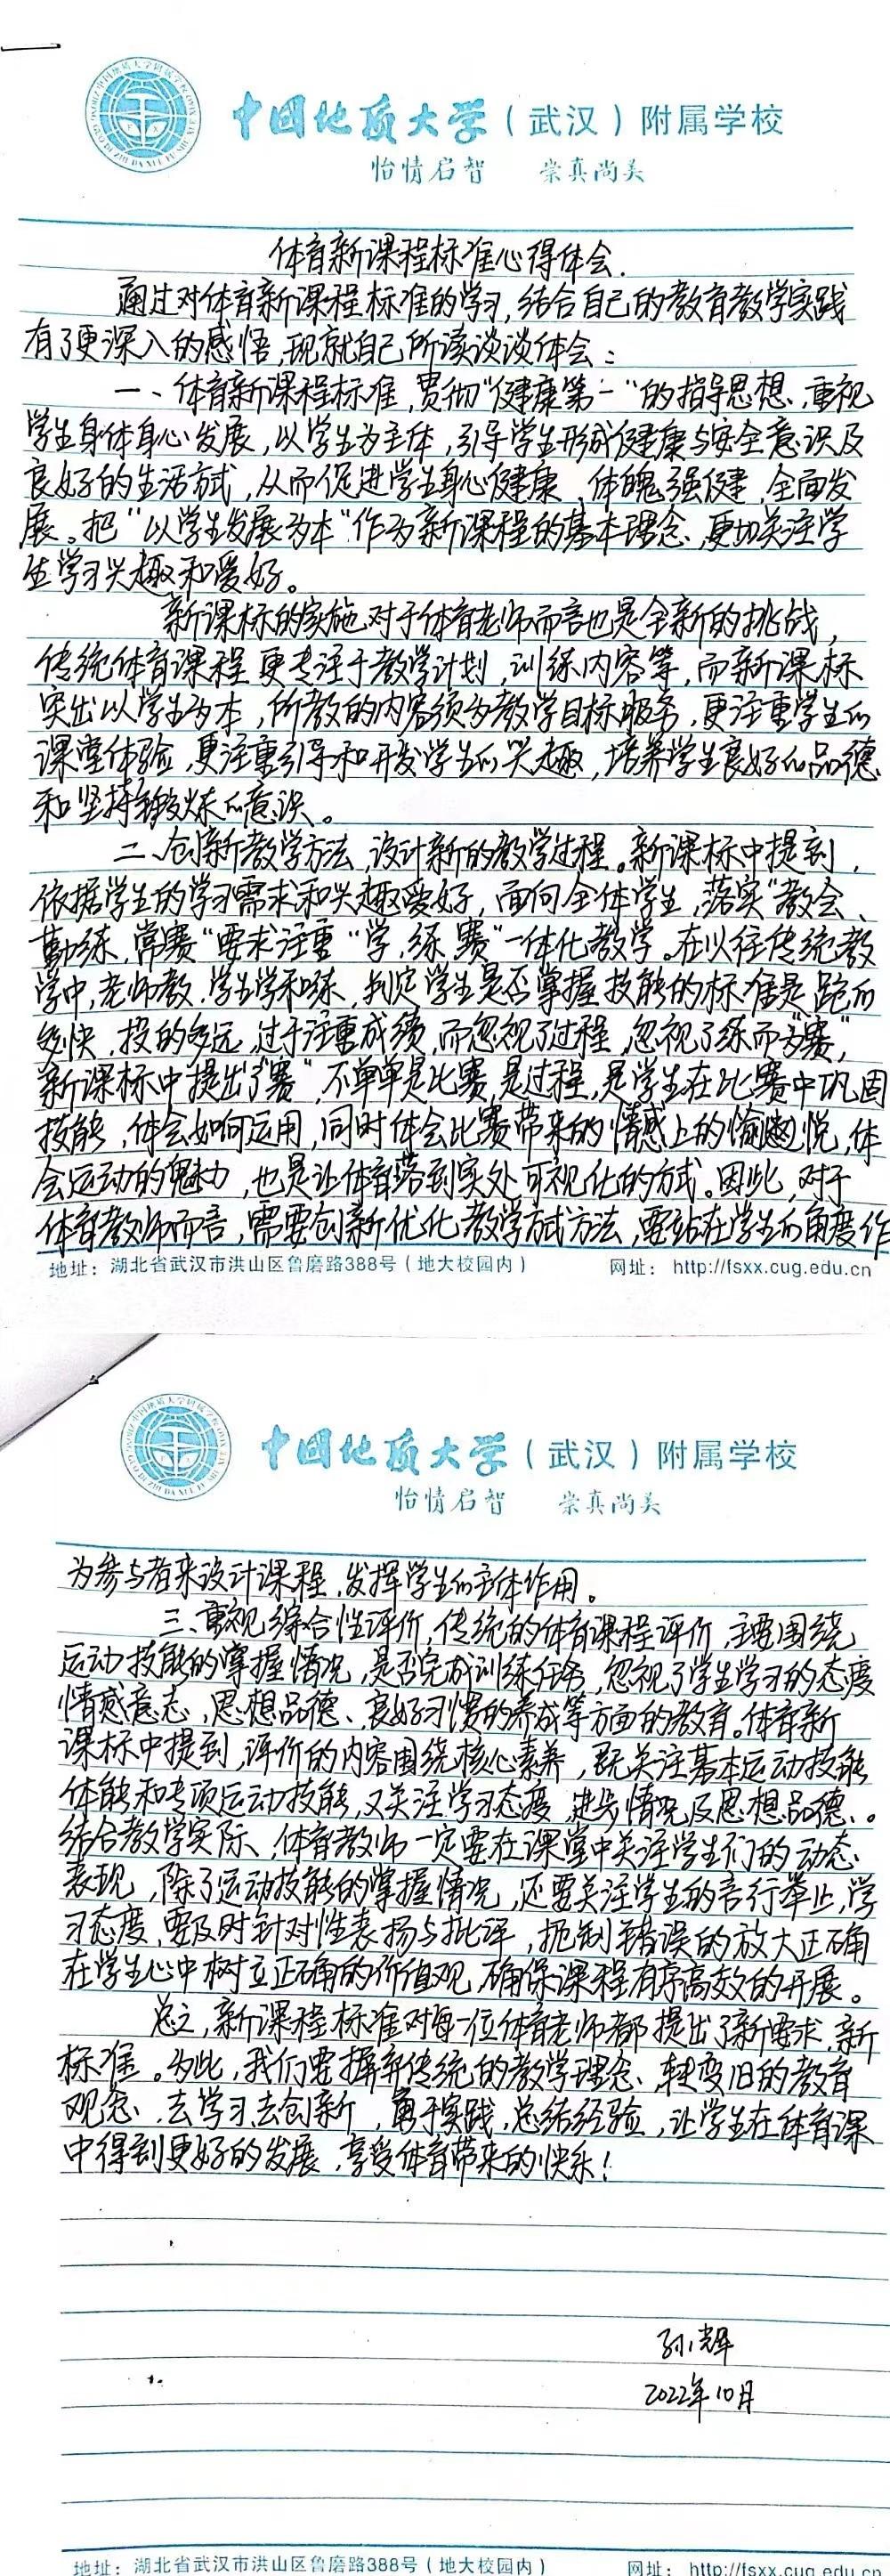 中国地质大学（武汉）附属学校
怡情启智 崇真尚美
体育新课程标准心得体会.
通过对体育新课程标准的学习,结合自己的教育教学实践
有了更深入的感悟,现就自己所读谈谈体会：
一、体育新课程标准,贯彻“健康第一”的指导思想,重视
学生身体身心发展,以学生为主体,引导学生形成健康与安全意识及
良好的生活方式,从而促进学生身心健康、体魄强健,全面发
展。把“以学生发展为本”作为新课程的基本理念、更加关注学
生学习兴趣和爱好。
新课标的实施对于体育老师而言也是全新的挑战,
传统体育课程更专注于教学计划,训练内容等,而新课标
突出以学生为本,所教的内容须为教学目标服务,更注重学生的
课堂体验,更注重引导和开发学生的兴趣,培养学生良好的品德
和坚持锻炼的意识。
二、创新教学方法,设计新的教学过程。新课标中提到,
依据学生的学习需求和兴趣爱好,面向全体学生,落实“教会、
勤练,常赛“要求注重“学,练,赛”一体化教学。在以往传统教
学中,老师教,学生学和练,判定学生是否掌握技能的标准是跑的
多快,投的多远,过于注重成绩,而忽视了过程,忽视了练而为“赛”,
新课标中提出了“赛”,不单单是比赛,是过程,是学生在比赛中巩固
技能,体会如何运用,同时体会比赛带来的情感上的愉悦,体
会运动的魅力,也是让体育落到实处可视化的方式。因此,对于
体育教师而言,需要创新优化教学方式方法,要站在学生的角度作
地址：湖北省武汉市洪山区鲁磨路388号（地大校园内） 网址：http://fsxx.cug.edu.cn
中国地质大学（武汉）附属学校
怡情启智 崇真尚美
为参与者来设计课程,发挥学生的主体作用。
三、重视综合性评价,传统的体育课程评价,主要围绕
运动技能的掌握情况,是否完成训练任务,忽视了学生学习的态度
情感意志,思想品德、良好习惯的养成等方面的教育。体育新
课标中提到,评价的内容围绕核心素养,既关注基本运动技能
体能和专项运动技能,又关注学习态度,进步情况及思想品德、。
结合教学实际、体育教师一定要在课堂中关注学生们的动态
表现,除了运动技能的掌握情况,还要关注学生的言行举止,学
习态度,要及时针对性表扬与批评,扼制错误的放大正确
在学生心中树立正确的价值观,确保课程有序高效的开展。
总之,新课程标准对每一位体育老师都提出了新要求,新
标准。为此,我们要摒弃传统的教学理念、转变旧的教育
观念、去学习去创新,勇于实践,总结经验,让学生在体育课
中得到更好的发展,享受体育带来的快乐!
孙辉
2022年10月
地址：湖北省武汉市洪山区鲁磨路388号（地大校园内） 网址：http://fsxx.cug.edu.cn